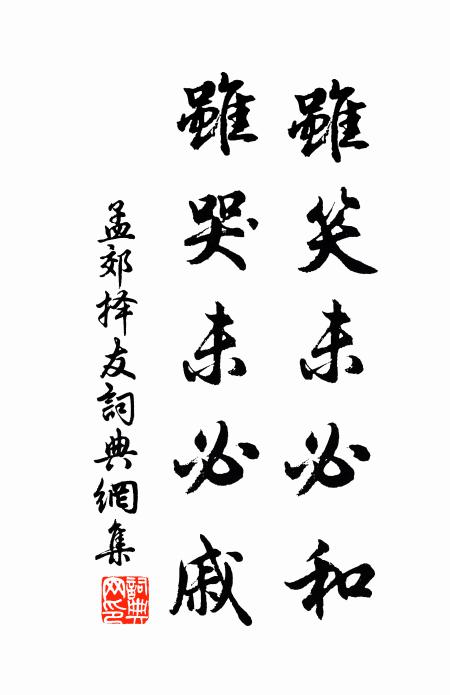 雖笑未必和
雖哭未必戚
孟郊择友詞典網集
詞典網印